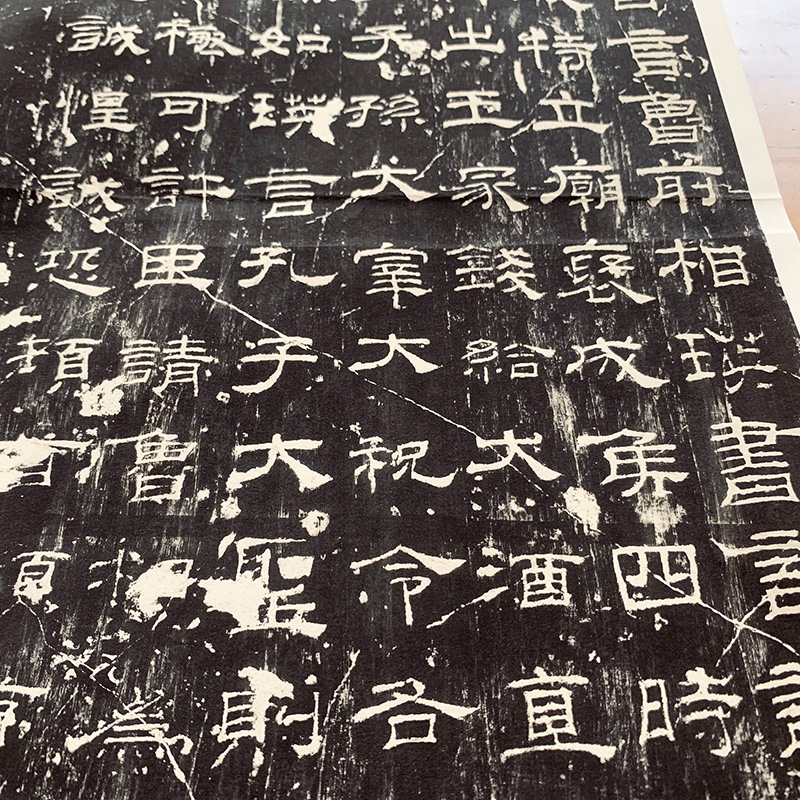 言魯前相瑛書言詔
特立廟褒成侯四時
出王家錢給犬酒直
子孫大宰大祝令各
如瑛言孔子大聖則
極可許臣請魯相為
誠惶誠恐頓首頓首